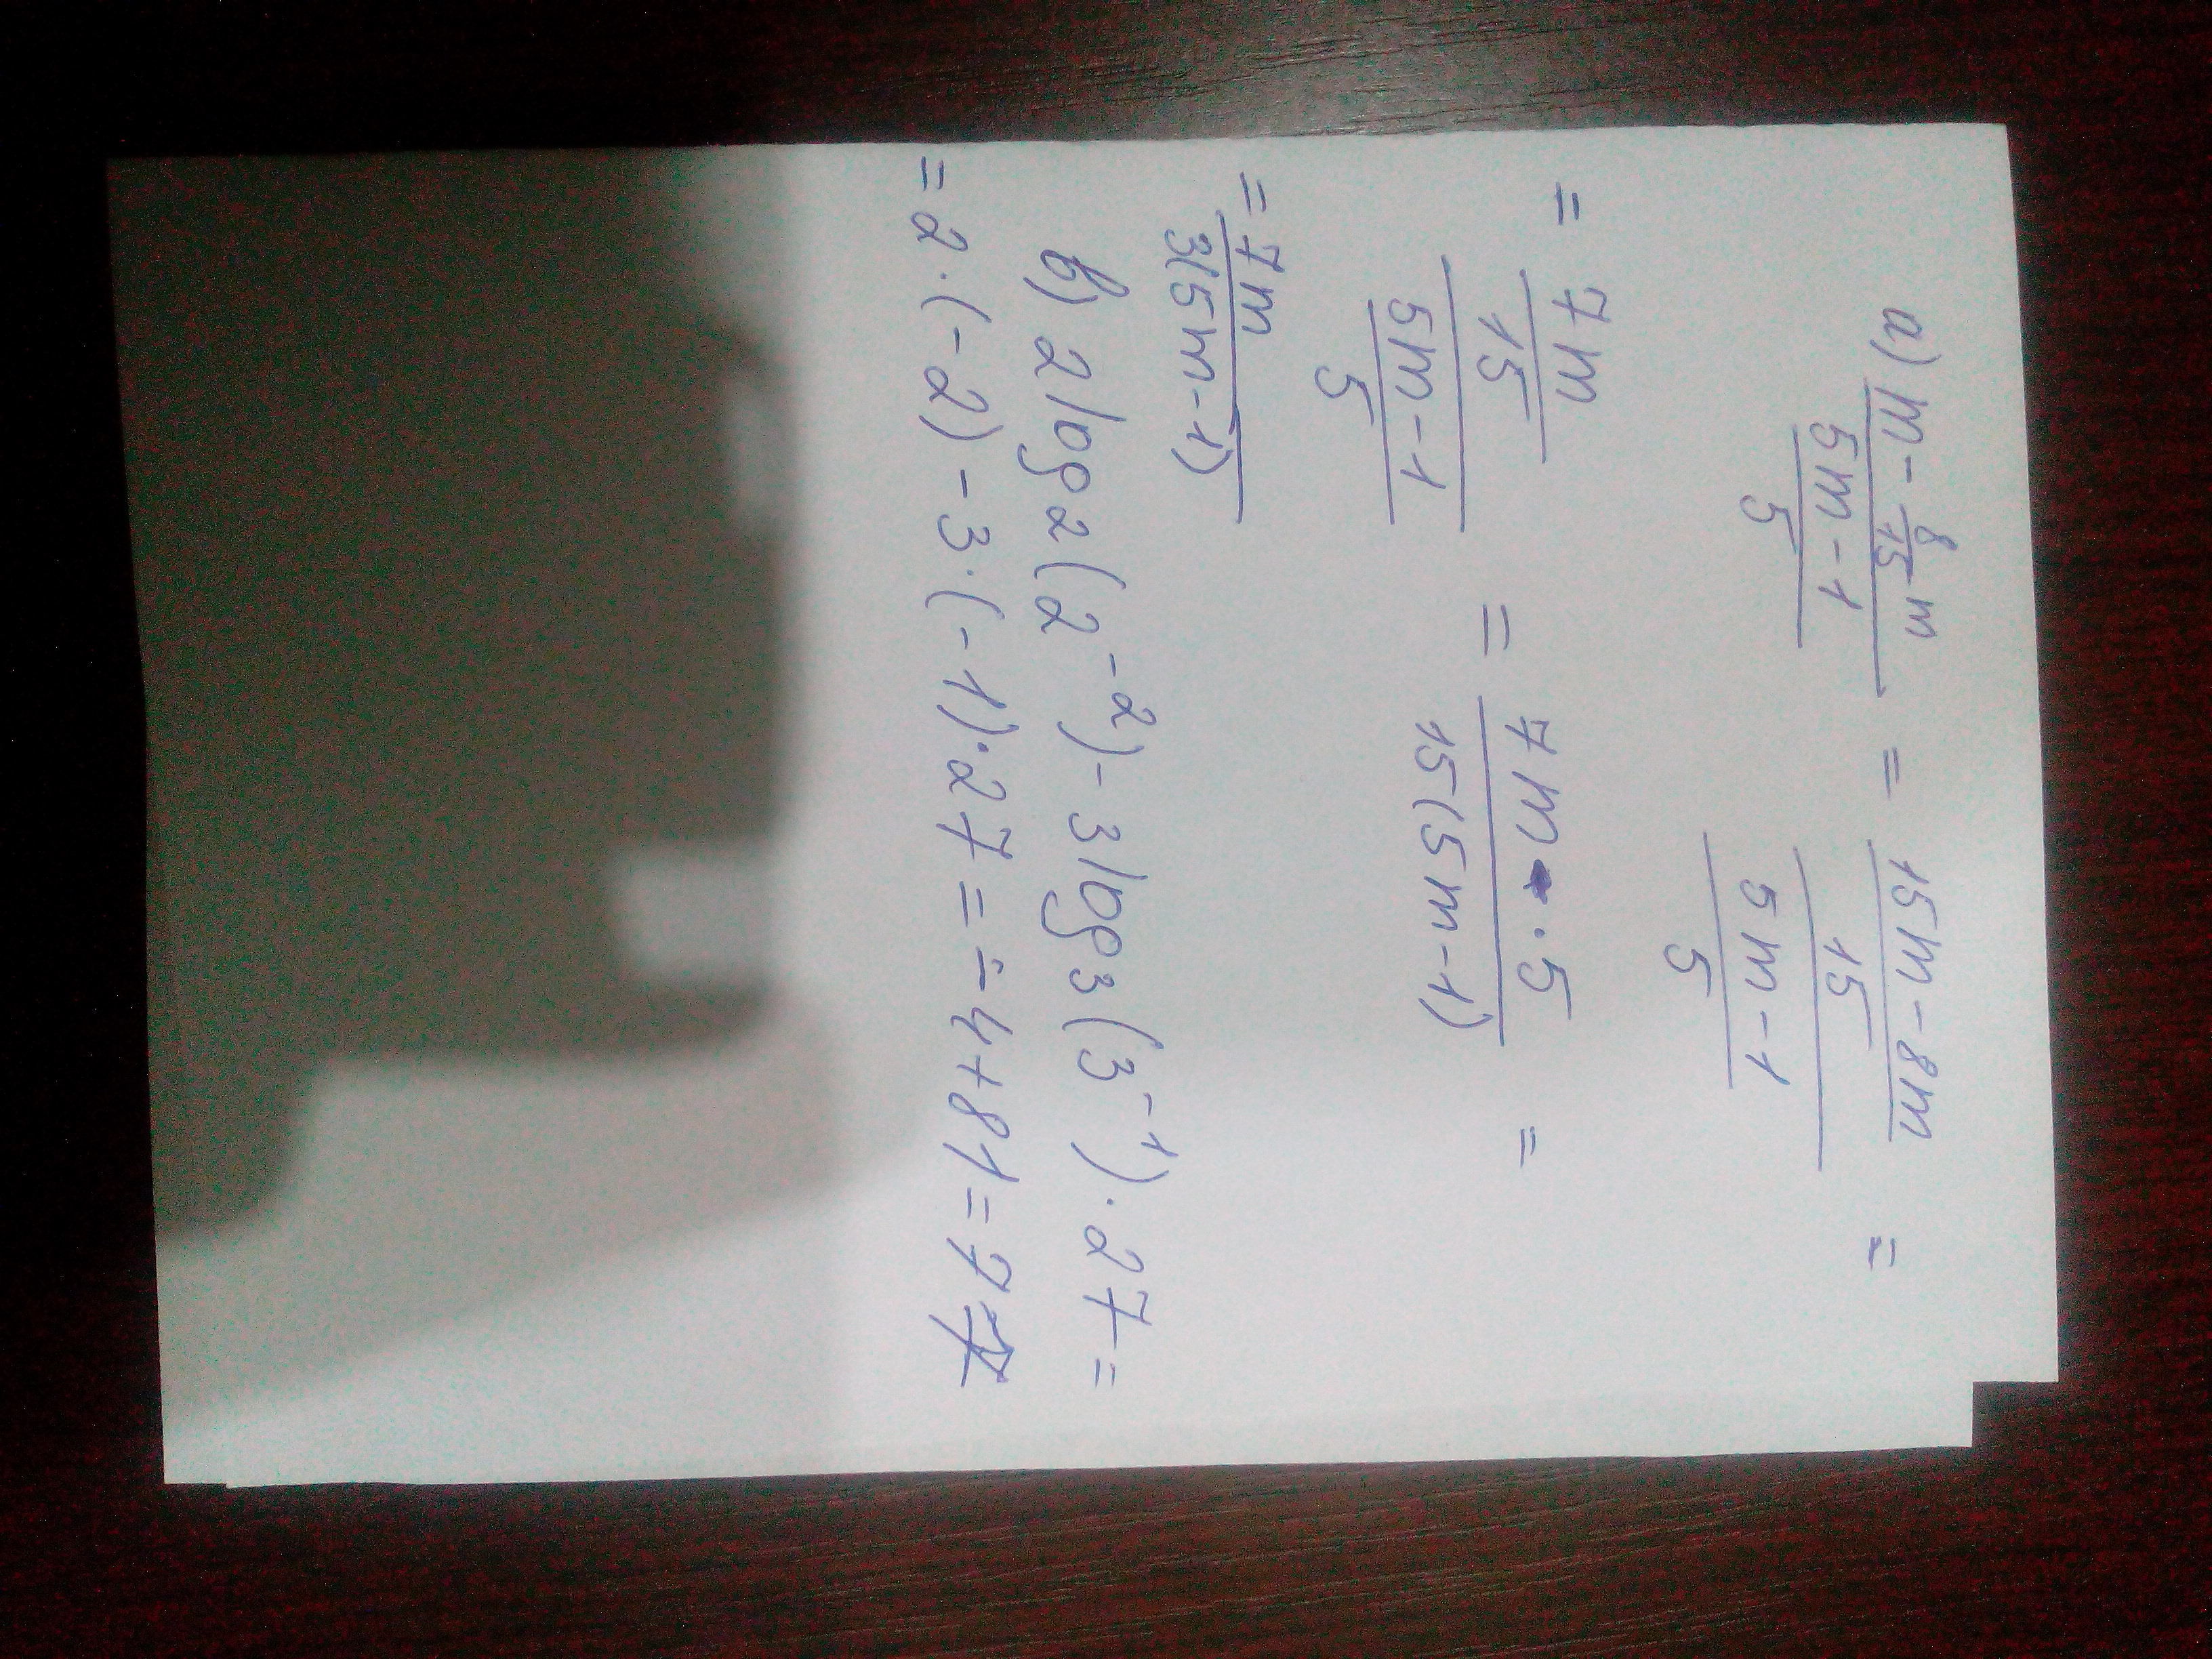 а) (m - 8/15 m)/((5m - 1)/5) = ((15m - 8m)/15)/((5m - 1)/5) =
= (7m/15)/((5m - 1)/5) = (7m · 5)/(15(5m - 1)) =
= 7m/(3(5m - 1))
в) 2 log₂(2⁻²) - 3 log₃(3⁻¹) · 27 =
= 2 · (-2) - 3 · (-1) · 27 = -4 + 81 = 77